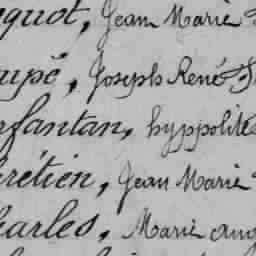 quot, Jean Marie
upé, Joseph René
rfantan, hyppolite
rétien, Jean Marie
harles, Marie ang